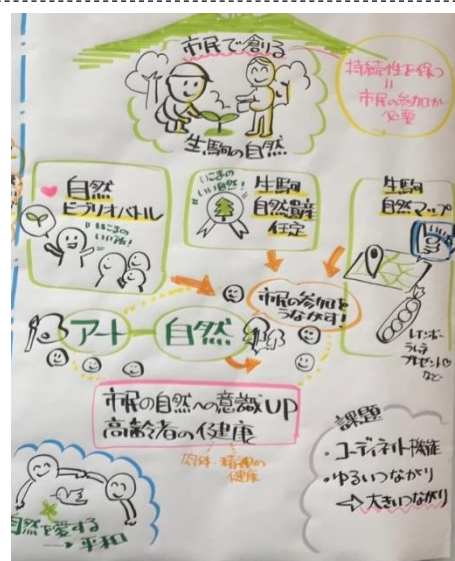 市民で創る
生駒の自然
持続性を保つ
=
市民の参加が
必要
自然
ビブリオバトル
いこまの
いい所!
いこまの
いい自然!
生駒
自然遺産
認定
生駒
自然マップ
市民の参加を
うながす!
アート
自然
プレゼント
など
市民の自然への意識UP
高齢者の健康
肉体・精神の
健康
課題
・コーディネート機能
・ゆるいつながり
⇨大きいつながり
自然を愛する
平和